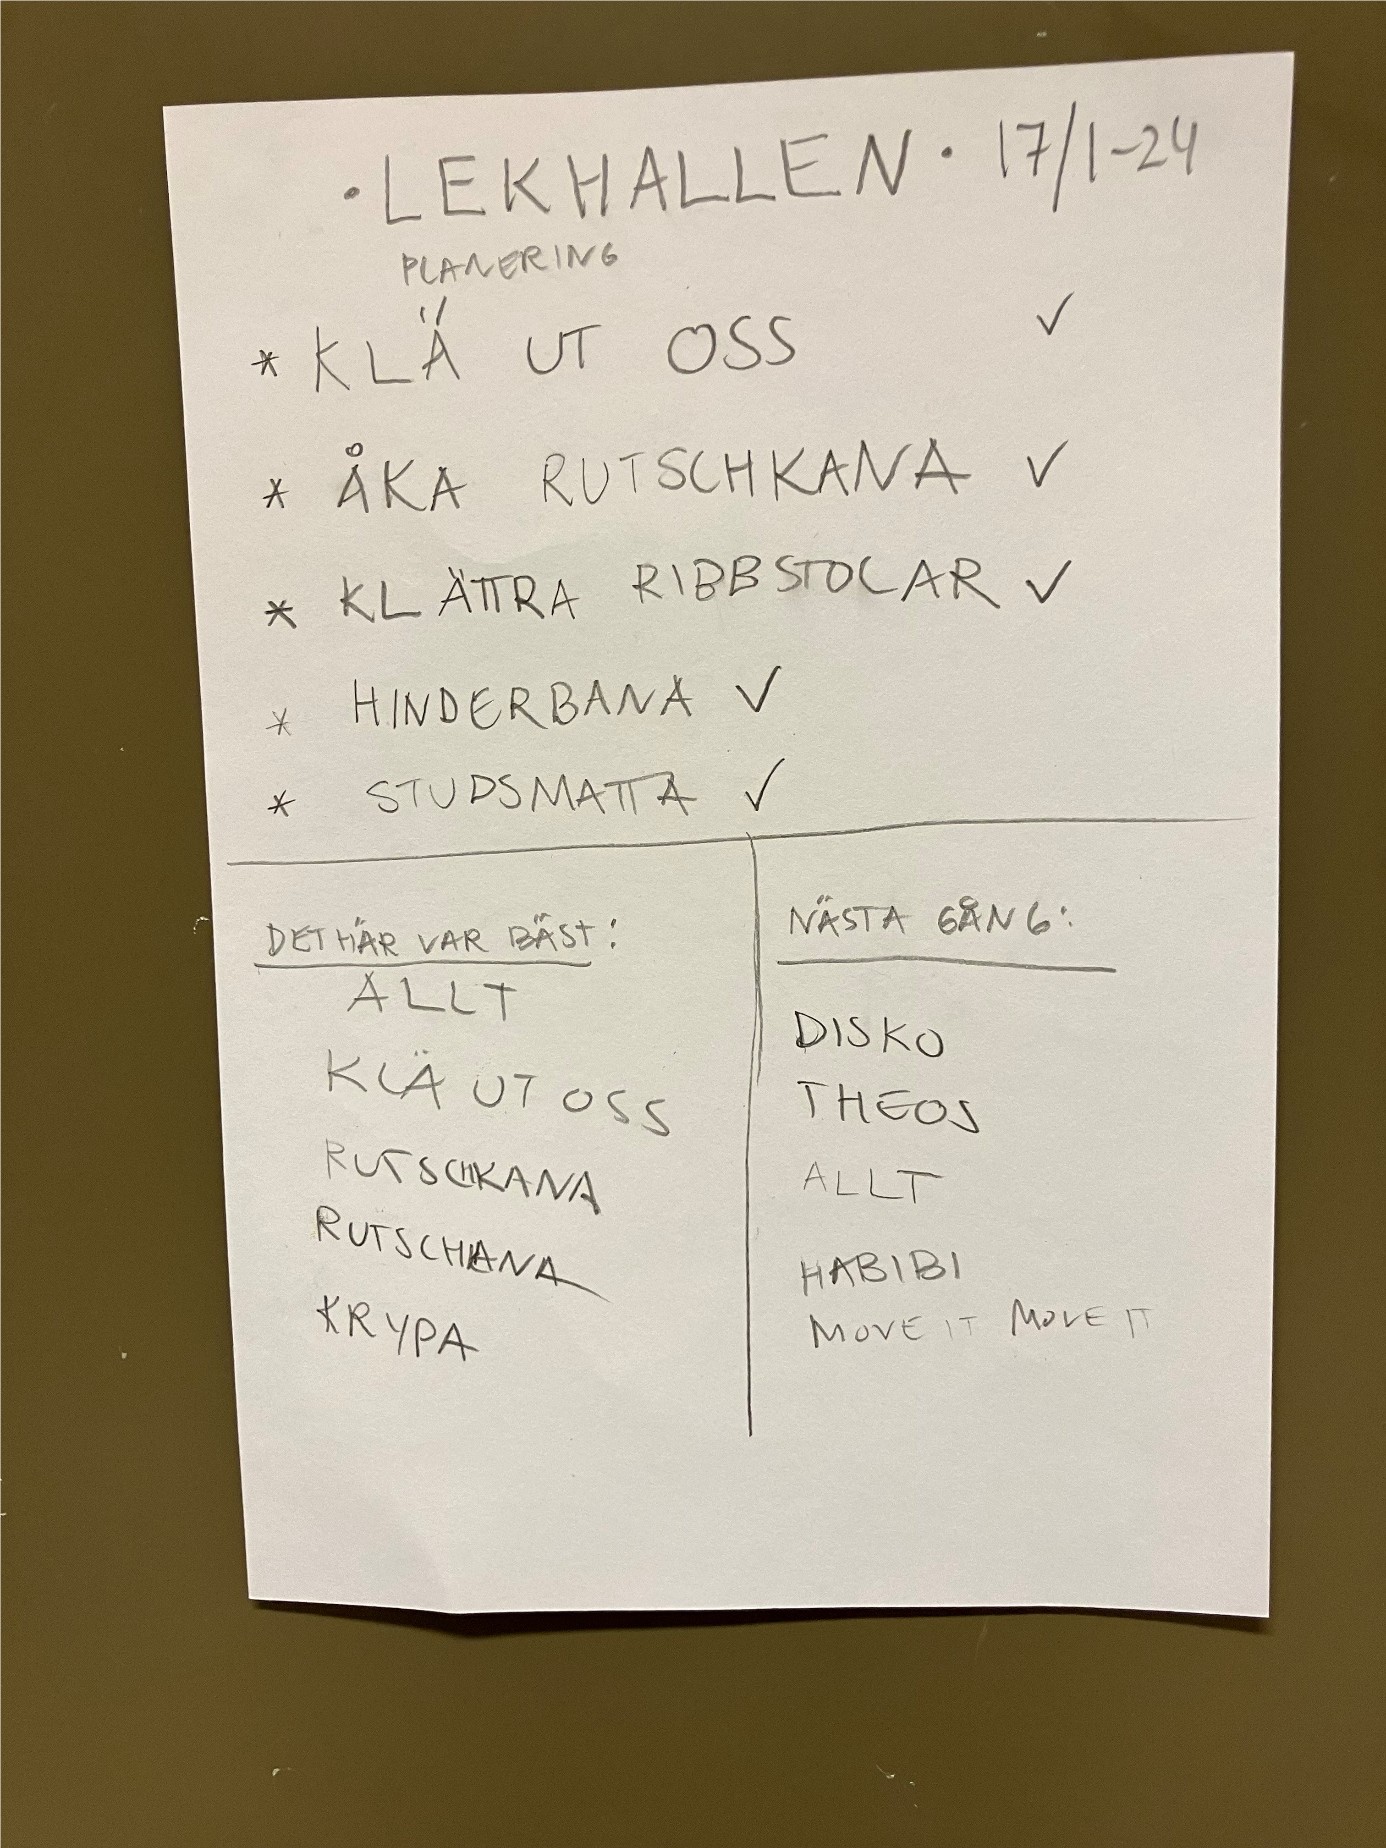 • LEKHALLEN • 17/1-24
PLANERING
* KLÄ UT OSS ✓
* ÅKA RUTSCHKANA ✓
* KLÄTTRA RIBBSTOLAR ✓
* HINDERBANA ✓
* STUDSMATTA ✓
DET HÄR VAR BÄST:
ALLT
KLÄ UT OSS
RUTSCHKANA
RUTSCHKANA
KRYPA
NÄSTA GÅNG:
DISKO
THEOS
ALLT
HABIBI
MOVE IT MOVE IT